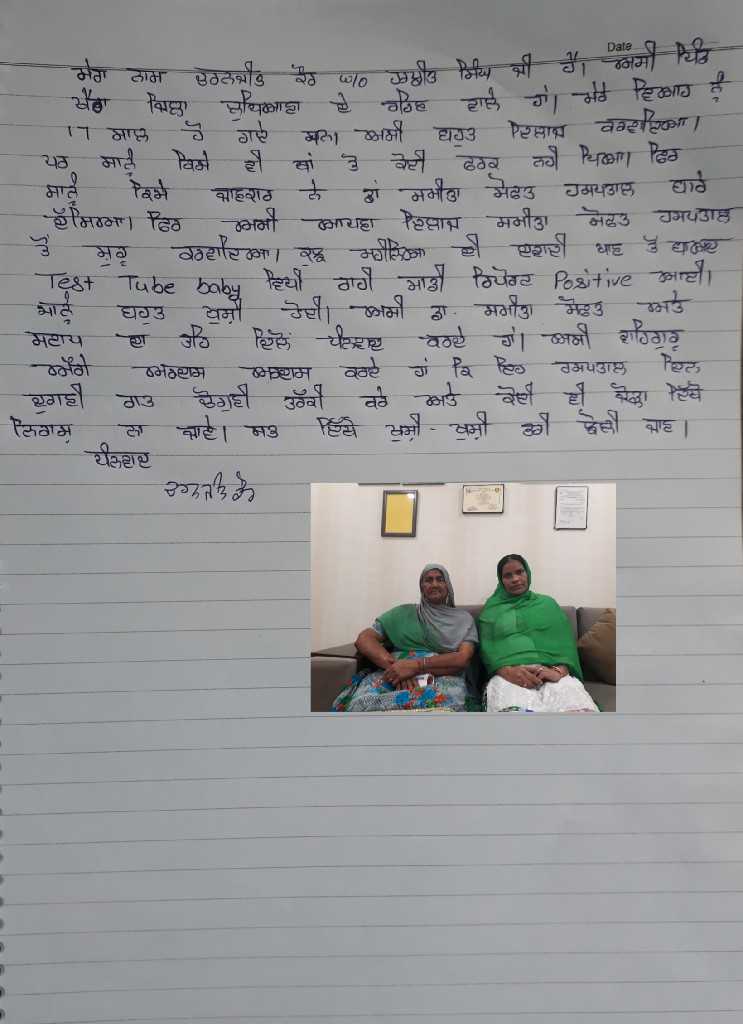 Date
ਮੇਰਾ ਨਾਮ ਚਰਨਜੀਤ ਕੌਰ w/o ਸਿੰਘ ਜੀ ਹੈ। ਅਸੀ ਪਿੰਡ
ਜ਼ਿਲ੍ਹਾ ਲੁਧਿਆਣਾ ਦੇ ਰਹਿਣ ਵਾਲੇ ਹਾਂ। ਮੇਰੇ ਵਿਆਹ ਨੂੰ
17 ਸਾਲ ਹੋ ਗਏ ਸਨ। ਅਸੀ ਬਹੁਤ ਇਲਾਜ ਕਰਵਾਇਆ।
ਪਰ ਸਾਨੂੰ ਕਿਸੇ ਵੀ ਥਾਂ ਤੋ ਕੋਈ ਫਰਕ ਨਹੀ ਪਿਆ। ਫਿਰ
ਸਾਨੂੰ ਕਿਸੇ ਜਾਣਕਾਰ ਨੇ ਡਾਂ ਸਮੀਤਾ ਸੋਫਤ ਹਸਪਤਾਲ ਬਾਰੇ
ਦੱਸਿਆ। ਫਿਰ ਅਸੀ ਆਪਣਾ ਇਲਾਜ ਸਮੀਤਾ ਸੋਫਤ ਹਸਪਤਾਲ
ਤੋਂ ਸ਼ੁਰੂ ਕਰਵਾਇਆ। ਕੁਝ ਮਹੀਨਿਆ ਦੀ ਦਵਾਈ ਖਾਣ ਤੋਂ ਬਾਅਦ
Test Tube baby ਵਿਧੀ ਰਾਹੀ ਸਾਡੀ ਰਿਪੋਰਟ Positive ਆਈ।
ਸਾਨੂੰ ਬਹੁਤ ਖੁਸ਼ੀ ਹੋਈ। ਅਸੀ ਡਾ. ਸਮੀਤਾ ਸੋਫਤ ਅਤੇ
ਸਟਾਫ ਦਾ ਤਹਿ ਦਿਲੋਂ ਧੰਨਵਾਦ ਕਰਦੇ ਹਾਂ। ਅਸੀ ਵਾਹਿਗੁਰੂ
ਅੱਗੇ ਅਰਦਾਸ ਕਰਦੇ ਹਾਂ ਕਿ ਇਹ ਹਸਪਤਾਲ ਦਿਨ
ਦੁਗਣੀ ਰਾਤ ਚੌਗੁਣੀ ਤਰੱਕੀ ਕਰੇ ਅਤੇ ਕੋਈ ਵੀ ਜੋੜਾ ਇੱਥੋ
ਨਿਰਾਸ਼ ਨਾ ਜਾਵੇ। ਸਭ ਇੱਥੋ ਖੁਸ਼ੀ - ਖੁਸ਼ੀ ਭਰੀ ਝੋਲੀ ਜਾਣ।
ਧੰਨਵਾਦ
ਚਰਨਜੀਤ ਕੌਰ